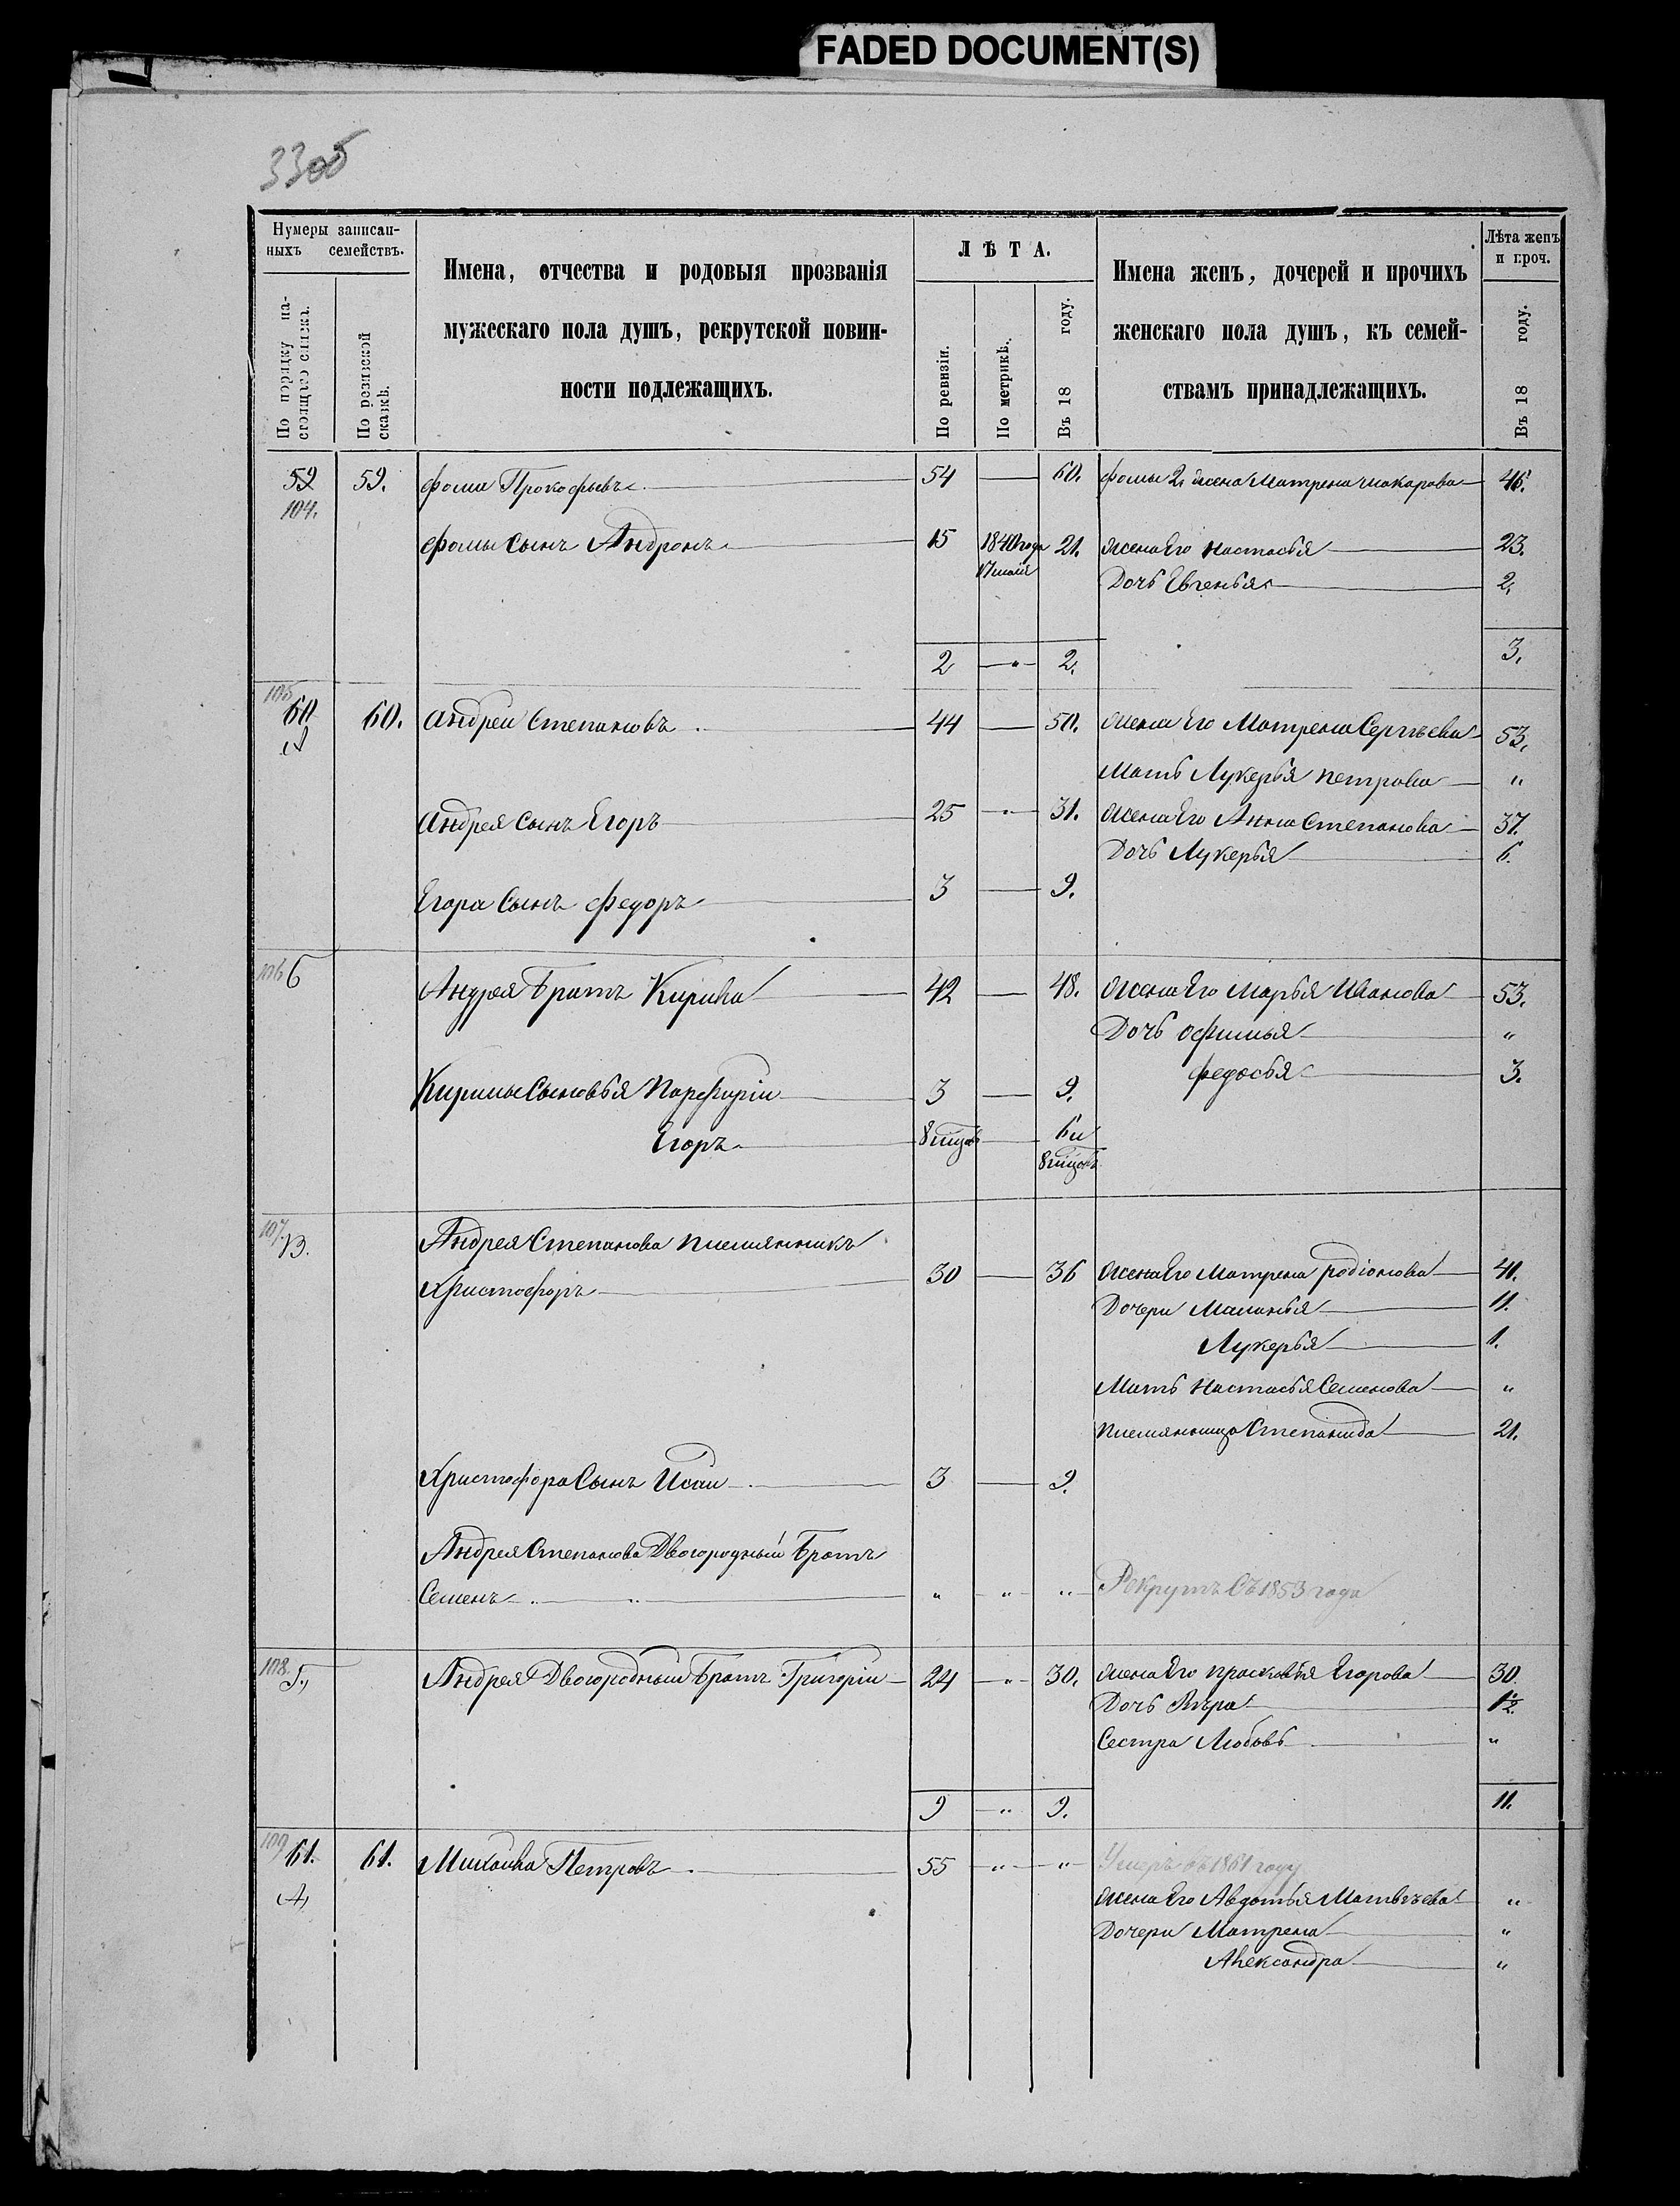 FADED DOCUMENT(S)
33об
Нумеры записан-
ныхъ семействъ.
По порядку на-
стоящаго списка.
По ревизской
сказкѣ.
Имена, отчества и родовыя прозванія
мужескаго пола душъ, рекрутской повин-
ности подлежащихъ.
ЛѢТА.
По ревизіи.
По метрикѣ.
Въ 18 году.
Имена женъ, дочерей и прочихъ
женскаго пола душъ, къ семей-
ствамъ принадлежащихъ.
Лѣта женъ
и проч.
Въ 18 году.
59 59. Фома Прокофьевъ 54 — 60. Фомы 2. жена Матрена Макарова 46.
104.
Фомы Сынъ Андронъ 15 1840 года 21. Жена Его Настасья 23.
17 мая
Дочь Евгенья 2.
2 " 2. 3.
105
60 60. Андреи Степановъ 44 — 50. Жена Его Матрена Сергѣева 53.
А
Мать Лукерья Петрова "
Андрея Сынъ Егоръ 25 " 31. Жена Его Анна Степанова 37.
Дочь Лукерья 6.
Егора Сынъ Федоръ 3 — 9.
106 Б Андрея Братъ Кирила 42 — 48. Жена Его Марья Иванова 53.
Дочь Офимья "
Федосья 3.
Кирилы Сыновья Парфирiи 3 — 9.
Егоръ 8 мцовъ — 6 и
8 мцовъ
107.
В. Андрея Степанова племянникъ
Христофоръ 30 — 36 Жена Его Матрена Родiонова 41.
Дочери Маланья 11.
Лукерья 1.
Мать Настасья Семенова "
племянница Степанида 21.
Христофора Сынъ Исаи 3 — 9.
Андрея Степанова Двогородный Братъ
Семенъ " " " Рекрутъ Съ 1853 года
108.
Г. Андрея Двогородныи Братъ Григорiи 24 " 30. Жена Его Прасковья Егорова 30.
Дочь Вѣра 1/2.
Сестра Любовь "
9 " 9. 11.
109
61. 61. Михаила Петровъ 55 " " Умеръ въ 1861 году
А
Жена Его Авдотья Матвѣева "
Дочери Матрена "
Александра "